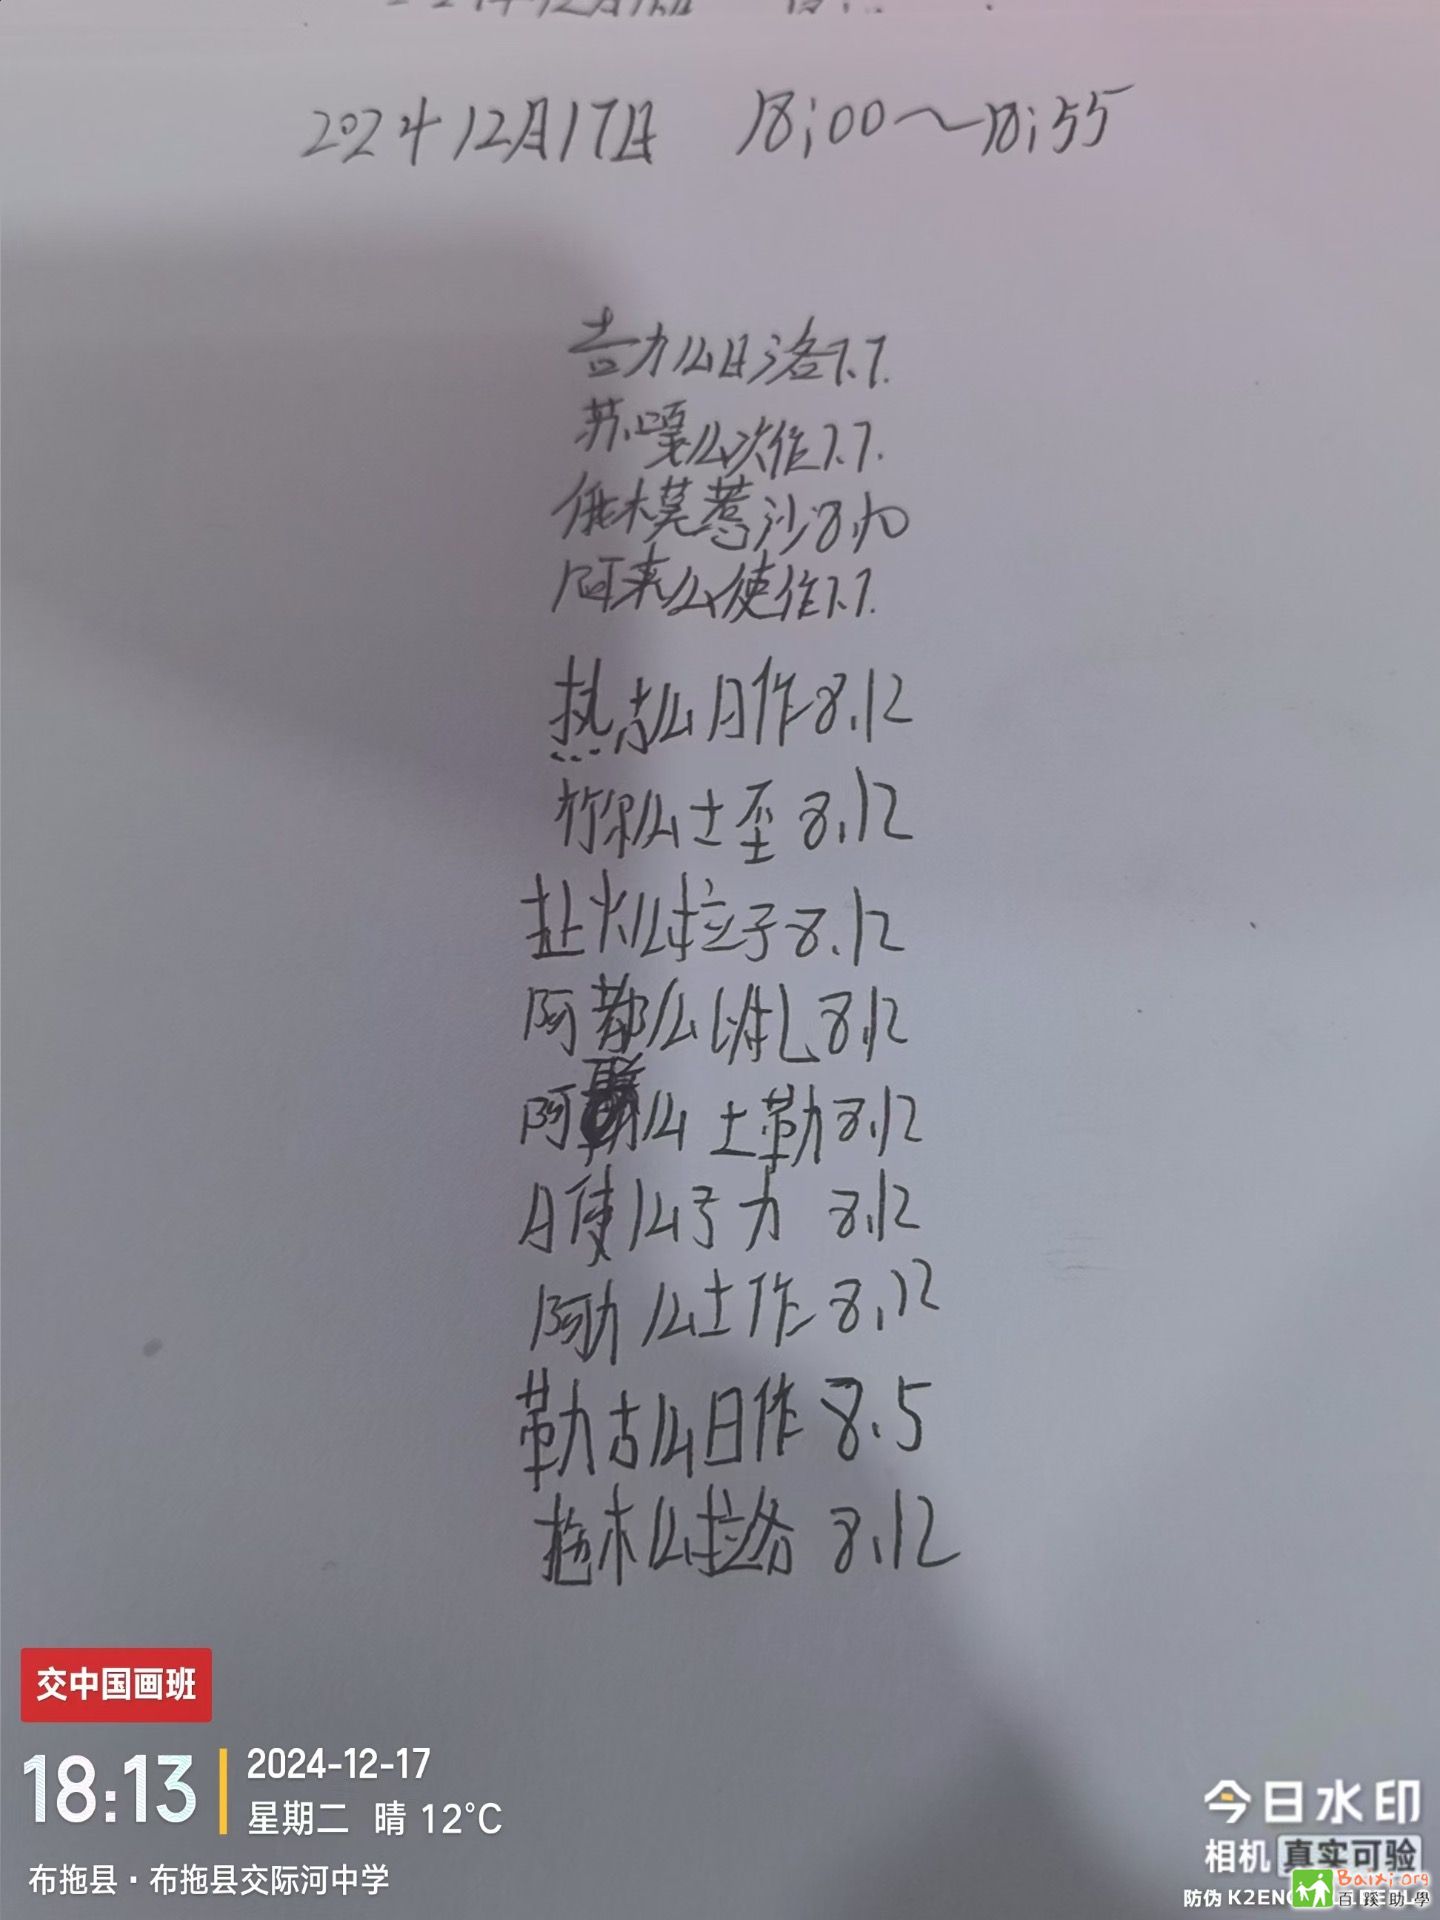 2024年12月17日 18:00～18:55
吉力么日洛7.7.
苏嘎么次作7.7.
俄木莫惹沙8.10
阿来么使作7.7.
热古么日作8.12
竹尔么士呷8.12
赴火么拉子8.12
阿都么以扎8.12
阿勒么土勒8.12
日使么子力 8.12
阿力么土作8.12
勒古么日作8.5
拖木么拉各 8.12
交中国画班
18:13
2024-12-17
星期二 晴 12°C
布拖县·布拖县交际河中学
今日水印
相机 真实可验
防伪 K2EN
Baixi.org
百蹊助學